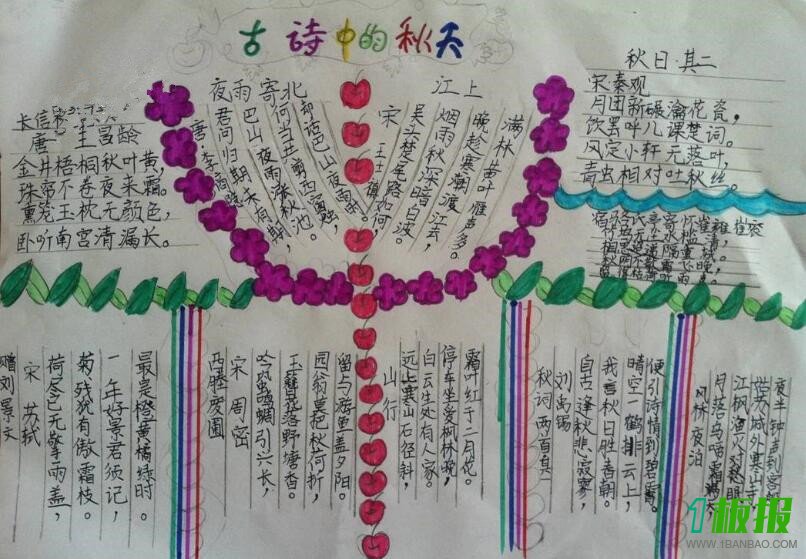 古诗中的秋天
长信秋
唐 王昌龄
金井梧桐秋叶黄，
珠帘不卷夜来霜。
熏笼玉枕无颜色，
卧听南宫清漏长。
夜雨寄北
唐·李商隐
君问归期未有期，
巴山夜雨涨秋池。
何当共剪西窗烛，
却话巴山夜雨时。
江上
宋 王士禛
吴头楚尾路如何，
烟雨秋深暗白波。
晚趁寒潮渡江去，
满林黄叶雁声多。
秋日·其二
宋秦观
月团新碾瀹花瓷，
饮罢呼儿课楚词。
风定小轩无落叶，
青虫相对吐秋丝。
赠刘景文
宋 苏轼
荷尽已无擎雨盖，
菊残犹有傲霜枝。
一年好景君须记，
最是橙黄橘绿时。
西塍废圃
宋 周密
吟蛩鸣蜩引兴长，
玉簪花落野塘香。
园翁莫把秋荷折，
留与游鱼盖夕阳。
山行
远上寒山石径斜，
白云生处有人家。
停车坐爱枫林晚，
霜叶红于二月花。
秋词 两首其一
刘禹锡
自古逢秋悲寂寥，
我言秋日胜春朝。
晴空一鹤排云上，
便引诗情到碧霄。
枫林夜泊
月落乌啼霜满天
江枫渔火对愁眠
姑苏城外寒山寺，
夜半钟声到客船
1板报
WWW.1BANBAO.COM